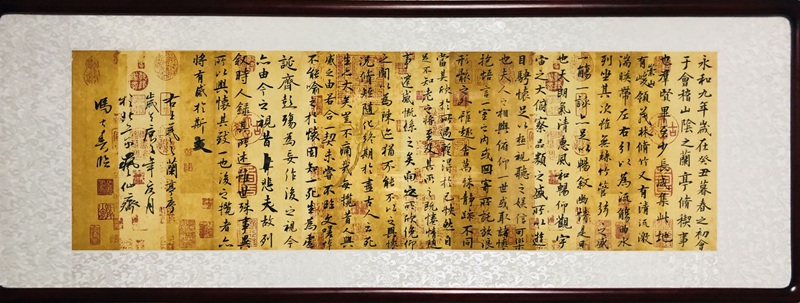 永和九年歲在癸丑暮春之初會
于會稽山陰之蘭亭脩禊事
也羣賢畢至少長咸集此地
有崇山峻領茂林脩竹又有清流激
湍暎帶左右引以為流觴曲水
列坐其次雖無絲竹管弦之盛
一觴一詠亦足以暢敘幽情是日
也天朗氣清惠風和暢仰觀宇
宙之大俯察品類之盛所以遊
目騁懷足以極視聽之娛信可樂
也夫人之相與俯仰一世或取諸懷
抱悟言一室之內或因寄所託放浪
形骸之外雖趣舍萬殊靜躁不同
當其欣於所遇暫得於己快然自
足不知老之將至及其所之既惓情隨
事遷感慨係之矣向之所欣俛仰
之間以為陳迹猶不能不以之興懷
況脩短隨化終期於盡古人云死
生亦大矣豈不痛哉每攬昔人興
感之由若合一契未嘗不臨文嗟悼
不能喻之於懷固知一死生為虛
誕齊彭殤為妄作後之視今
亦由今之視昔悲夫故列
敘時人錄其所述雖世殊事異
所以興懷其致一也後之攬者亦
將有感於斯文
右王羲之蘭亭序
歲在庚子年月
於北京仙齋
馮春臨